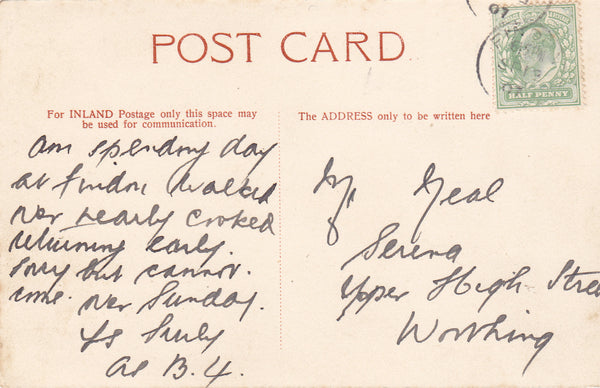 POST CARD
HALF PENNY
For INLAND Postage only this space may
be used for communication.
The ADDRESS only to be written here
am spending day
at Findon walked
nearly cooked
returning early.
sorry but cannot
come. Sunday.
Ys Truly
as B.4.
Mr Neal
Serena
Upper High Stree
Worthing